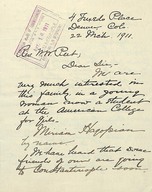 4 Fresdo Place
Denver, Col.
22 Mch 1911.
Rev. W. W. Peet,
Dear Sir:-
We are
very much interested on
the family in a young
woman now a student
at the American College
for Girls.
Miriam Hagopian
by name.
We have heard that some
friends of ours are going
to Constantinople soon